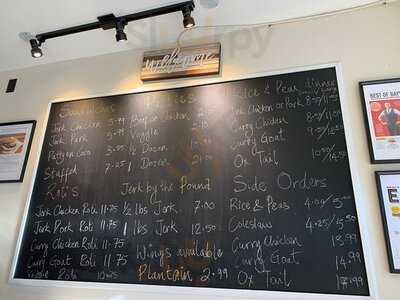 welcome
Sandwiches
Jerk Chicken 5.99
Jerk Pork 5.99
Patty in Coco 3.55
Stuffed 7.25
Beef or Chicken 2.10
Veggie 2.10
½ Dozen
1 Dozen 21.00
Rice & Peas dinner
Jerk Chicken or Pork 8.50/11.50
Curry Chicken
Curry Goat
Ox Tail 10.50/14.50
Rotis
Jerk Chicken Roti 11.75
Jerk Pork Roti 11.75
Curry Chicken Roti 11.75
Curry Goat Roti 11.75
Veggie Roti 10.75
Jerk by the Pound
½ lbs Jerk 7.00
1 lbs Jerk 12.50
Wings available
Plantain 2.99
Side Orders
Rice & Peas 4.00/5.00
Coleslaw 4.25/5.50
Curry Chicken 12.99
Curry Goat 14.99
Ox Tail 17.99
BEST OF